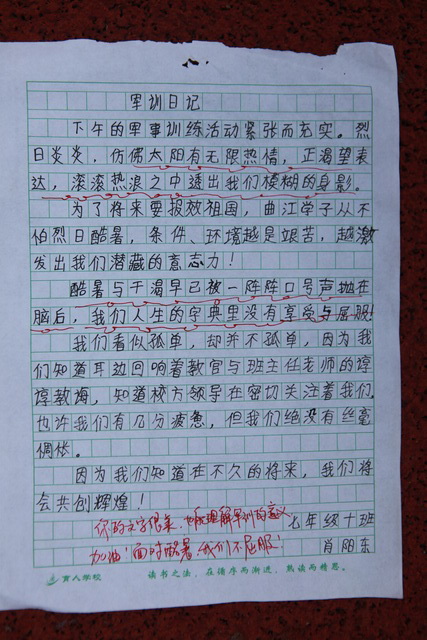 军训日记
下午的军事训练活动紧张而充实。烈
日炎炎，仿佛太阳有无限热情，正渴望表
达，滚滚热浪之中透出我们模糊的身影。
为了将来要报效祖国，曲江学子从不
怕烈日酷暑，条件、环境越是艰苦，越激
发出我们潜藏的意志力！
酷暑与干渴早已被一阵阵口号声抛在
脑后，我们人生的字典里没有享受与屈服！
我们看似孤单，却并不孤单，因为我
们知道耳边回响着教官与班主任老师的谆
谆教诲，知道校方领导在密切关注着我们。
也许我们有几分疲惫，但我们绝没有丝毫
惆怅。
因为我们知道在不久的将来，我们将
会共创辉煌！
你的文字很美，也能理解军训的意义
七年级十班
加油！面对酷暑，我们不屈服！
肖阳东
育人学校 读书之法，在循序而渐进，熟读而精思。